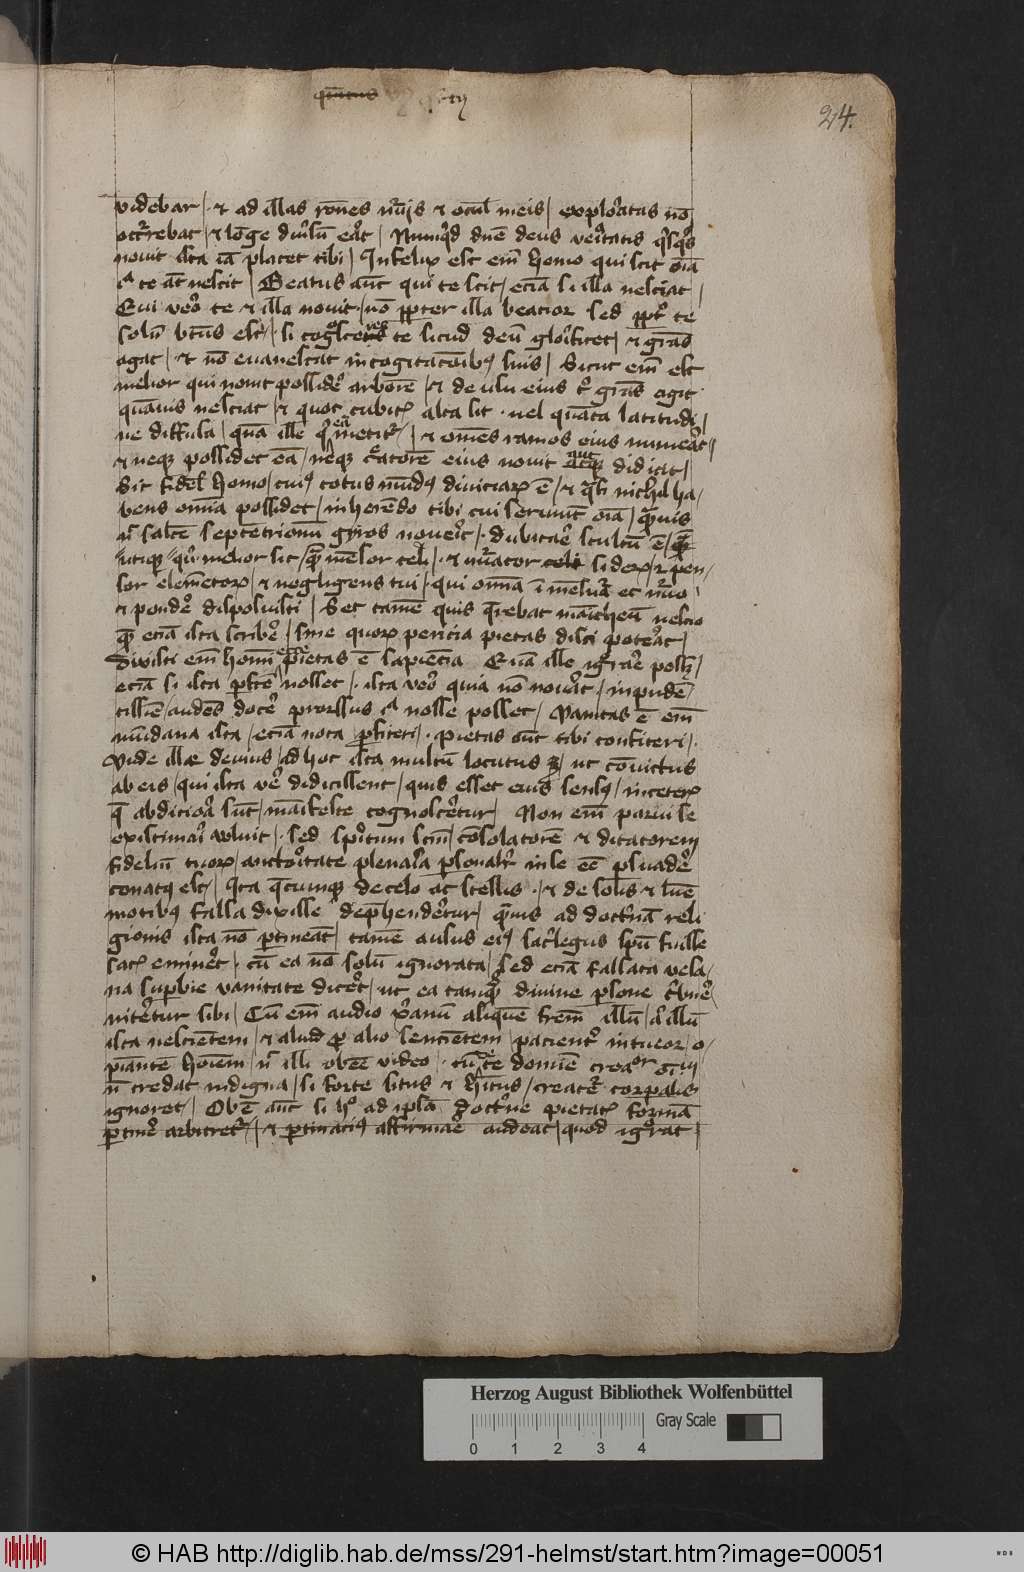 quintus
24.
videbar / · et ad illas ro͞nes nu͞ijs et oc͞ul meis / explor͛atas no͞
occ͛rrebat / et lo͞ge diu͛su͞ e͛at / Numq͛d dn͞e deus veri͛tatis q͛sq͛s
nouit ista ia͞ placet tibi / Infelix est em͞ homo qui scit o͞ia
i͛a te a͞t nescit / Beatus a͞ut qui te scit / ecia͞ si illa nesciat /
Qui ve͛o te et illa nouit · / no͞ p͞pter illa beacior sed p͞pt͛ te
solu͞ bt͞us est / · si cog͛oscens te sicud deu͞ glo͛ificet / et gr͞as
agat / · et no͞ euanescat in cogitac͞oib9 suis / Sicut em͞ est
melior qui nouit posside͛ arbore͞ / et de usu eius t͛ gr͞as agit ·
qua͞uis nesciat / et quot cubit͛ alta sit · uel qua͞ta latitudi /
ne diffusa / qua͞ ille q͛ ea͞ metit͛ · / et om͞es ramos eius nume͛at /
et neqz possidet ea͞ / neqz c͛atore͞ eius nouit aut didicit /
Sic fidel͛ homo / cui9 totus mu͞d9 diuiciarꝫ e͞ / et q͛si nichil ha /
bens omnia possidet / inhere͞do tibi cui seruiu͞t o͞ia / qua͞uis
n͛ salte͞ septe͞trionu͞ gyros noue͛it / · dubita͛e stultu͞ e͞ /
utiqz q͛n melior sit / qua͞ me͞sor celi / · et nu͛ator siderꝫ / et pen /
sor eleme͞torꝫ et negligens tui / · qui omnia i͞ me͞su͛a et nu͛o
et ponde͛ disposuisti / Set tame͞ quis q͛rebat ma͞icheu͞ nescio
que͞ ecia͞ ista scribe͛ / sine quorꝫ pericia pietas disci pote͛at /
Dixisti em͞ homi͞ esse pietas e͞ sapie͞cia Qua͞ ille ig͛ra͛e posz /
ecia͞ si ista p͛fte͛ nosset / · ista ve͛o quia no͞ nou͛at / inpude͞ /
tissi͞e / aude͞s doce͛ prorssus i͛a nosse posset / Vanitas e͞ em͞
mu͞dana ista / ecia͞ nota p͛fiteri / · pietas a͞ut tibi confiteri / ·
Vnde ille deuius / ad hoc ista multu͞ locutus / ut co͞uictus
ab eis / qui ista ve͛ didicissent / quis esset eius sens9 / in ceterꝫ
q͞ abdicio͛a su͞t / ma͞ifeste cognosce͛tur / Non em͞ parui se
existima͛i voluit / · sed sp͛itum sc͞m / co͞solatore͞ et ditatorem
fidelu͞ tuorꝫ / aucto͛itate plena͛ia p͛sonal͛r in se e͞e p͛suade͛
conat9 est / Ita q͞cumqz de celo ac stellis · / et de solis et lu͞e
motib9 falsa dixisse dep͛hende͛tur / qu͞is ad doct͛na͞ reli
gionis ista no͞ p͛tinea͞t / tame͞ ausus ei9 sac͛legus sp͞u fuisse
sat͛ emine͛t / · cu͞ ea no͞ solu͞ ignorata / sed ecia͞ falsata vesa /
na sup͛bie vanitate dice͛t / ut ea tamqu͞ diuine p͛sone t͛bue͛
nite͛tur sibi / Cu͞ em͞ audio x͛anu͞ alique͞ fre͞m illu͞ / a͛ illu͞
ista nescie͞tem / et aliud p͛ alio sencie͞tem / pacient͛ intueor / o /
pia͞ntem ho͞iem / n͛ illi obe͞e video / · cu͞ de te domi͞e creator o͞iu͞
n͞ credat indigna / si forte situs et h͞itus / creat͛e corp͛alis
ignoret / Obe͞ a͞ut si h͛o ad ip͛sa͞ doct͛ne pietat͛ forma͞
p͛tine͛ arbitret͛ / et p͛tinaci9 affirma͛e audeat / quod ig͛orat /
Herzog August Bibliothek Wolfenbüttel
Gray Scale
0 1 2 3 4
© HAB http://diglib.hab.de/mss/291-helmst/start.htm?image=00051